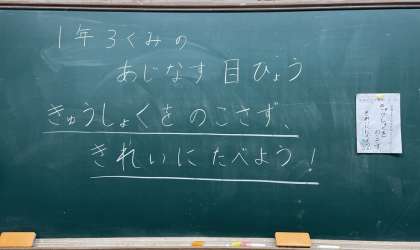 1年3くみの
あじなす目ひょう
きゅうしょくをのこさず、
きれいにたべよう!